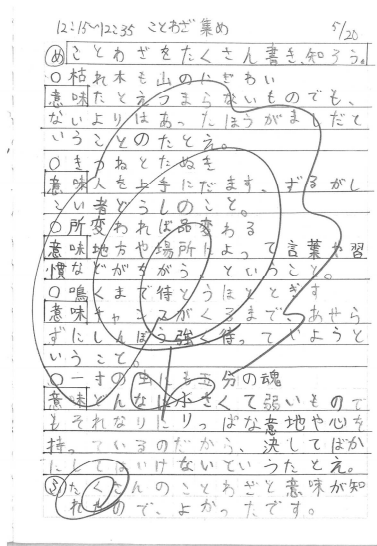 12:15〜12:35 ことわざ集め 5/20
め ことわざをたくさん書き、知ろう。
○枯れ木も山のにぎわい
意味 たとえつまらないものでも、
ないよりはあったほうがましだと
いうことのたとえ。
○きつねとたぬき
意味 人を上手にだます、ずるがし
こい者どうしのこと。
○所変われば品変わる
意味 地方や場所によって言葉や習
慣などがちがう。ということ。
○鳴くまで待とうほととぎす
意味 チャンスがくるまで、あせら
ずにしんぼう強く待っていようと
いうこと。
○一寸の虫にも五分の魂
意味 どんなに小さくて弱いもので
もそれなりにりっぱな意地や心を
持っているのだから、決してばか
にしてはいけないというたとえ。
ふ たくさんのことわざと意味が知
れたので、よかったです。